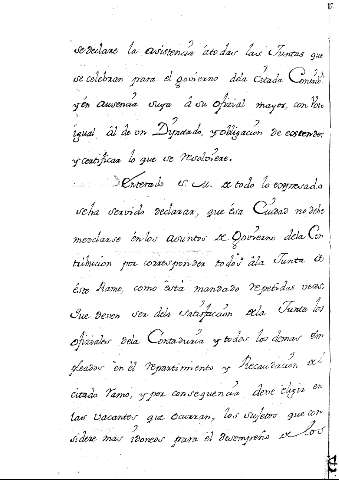 se declare la asistencia á todas las Juntas que
se celebran para el govierno dela Citada Contad.
y én ausencia suya á su oficial mayor, con Voto
igual ál de un Diputado, y obligacion de extender
y certificar lo que se resolviere.
Enterado S.M. de todo lo expresado
se ha servido declarar, que ésa Ciudad no debe
mezclarse en los asuntos de Govierno dela Con
tribucion por corresponder todos á la Junta de
éste Ramo, como ésta mandado repetidas veces.
Que deven ser dela satisfaccion de la Junta los
oficiales dela Contaduria y todos los demas Em
pleados en el repartimiento y Recaudacion del
citado ramo, y por consequencia deve elegir en
las vacantes que ocurran, los sujetos que con
sidere mas idoneos para el desempeño de los